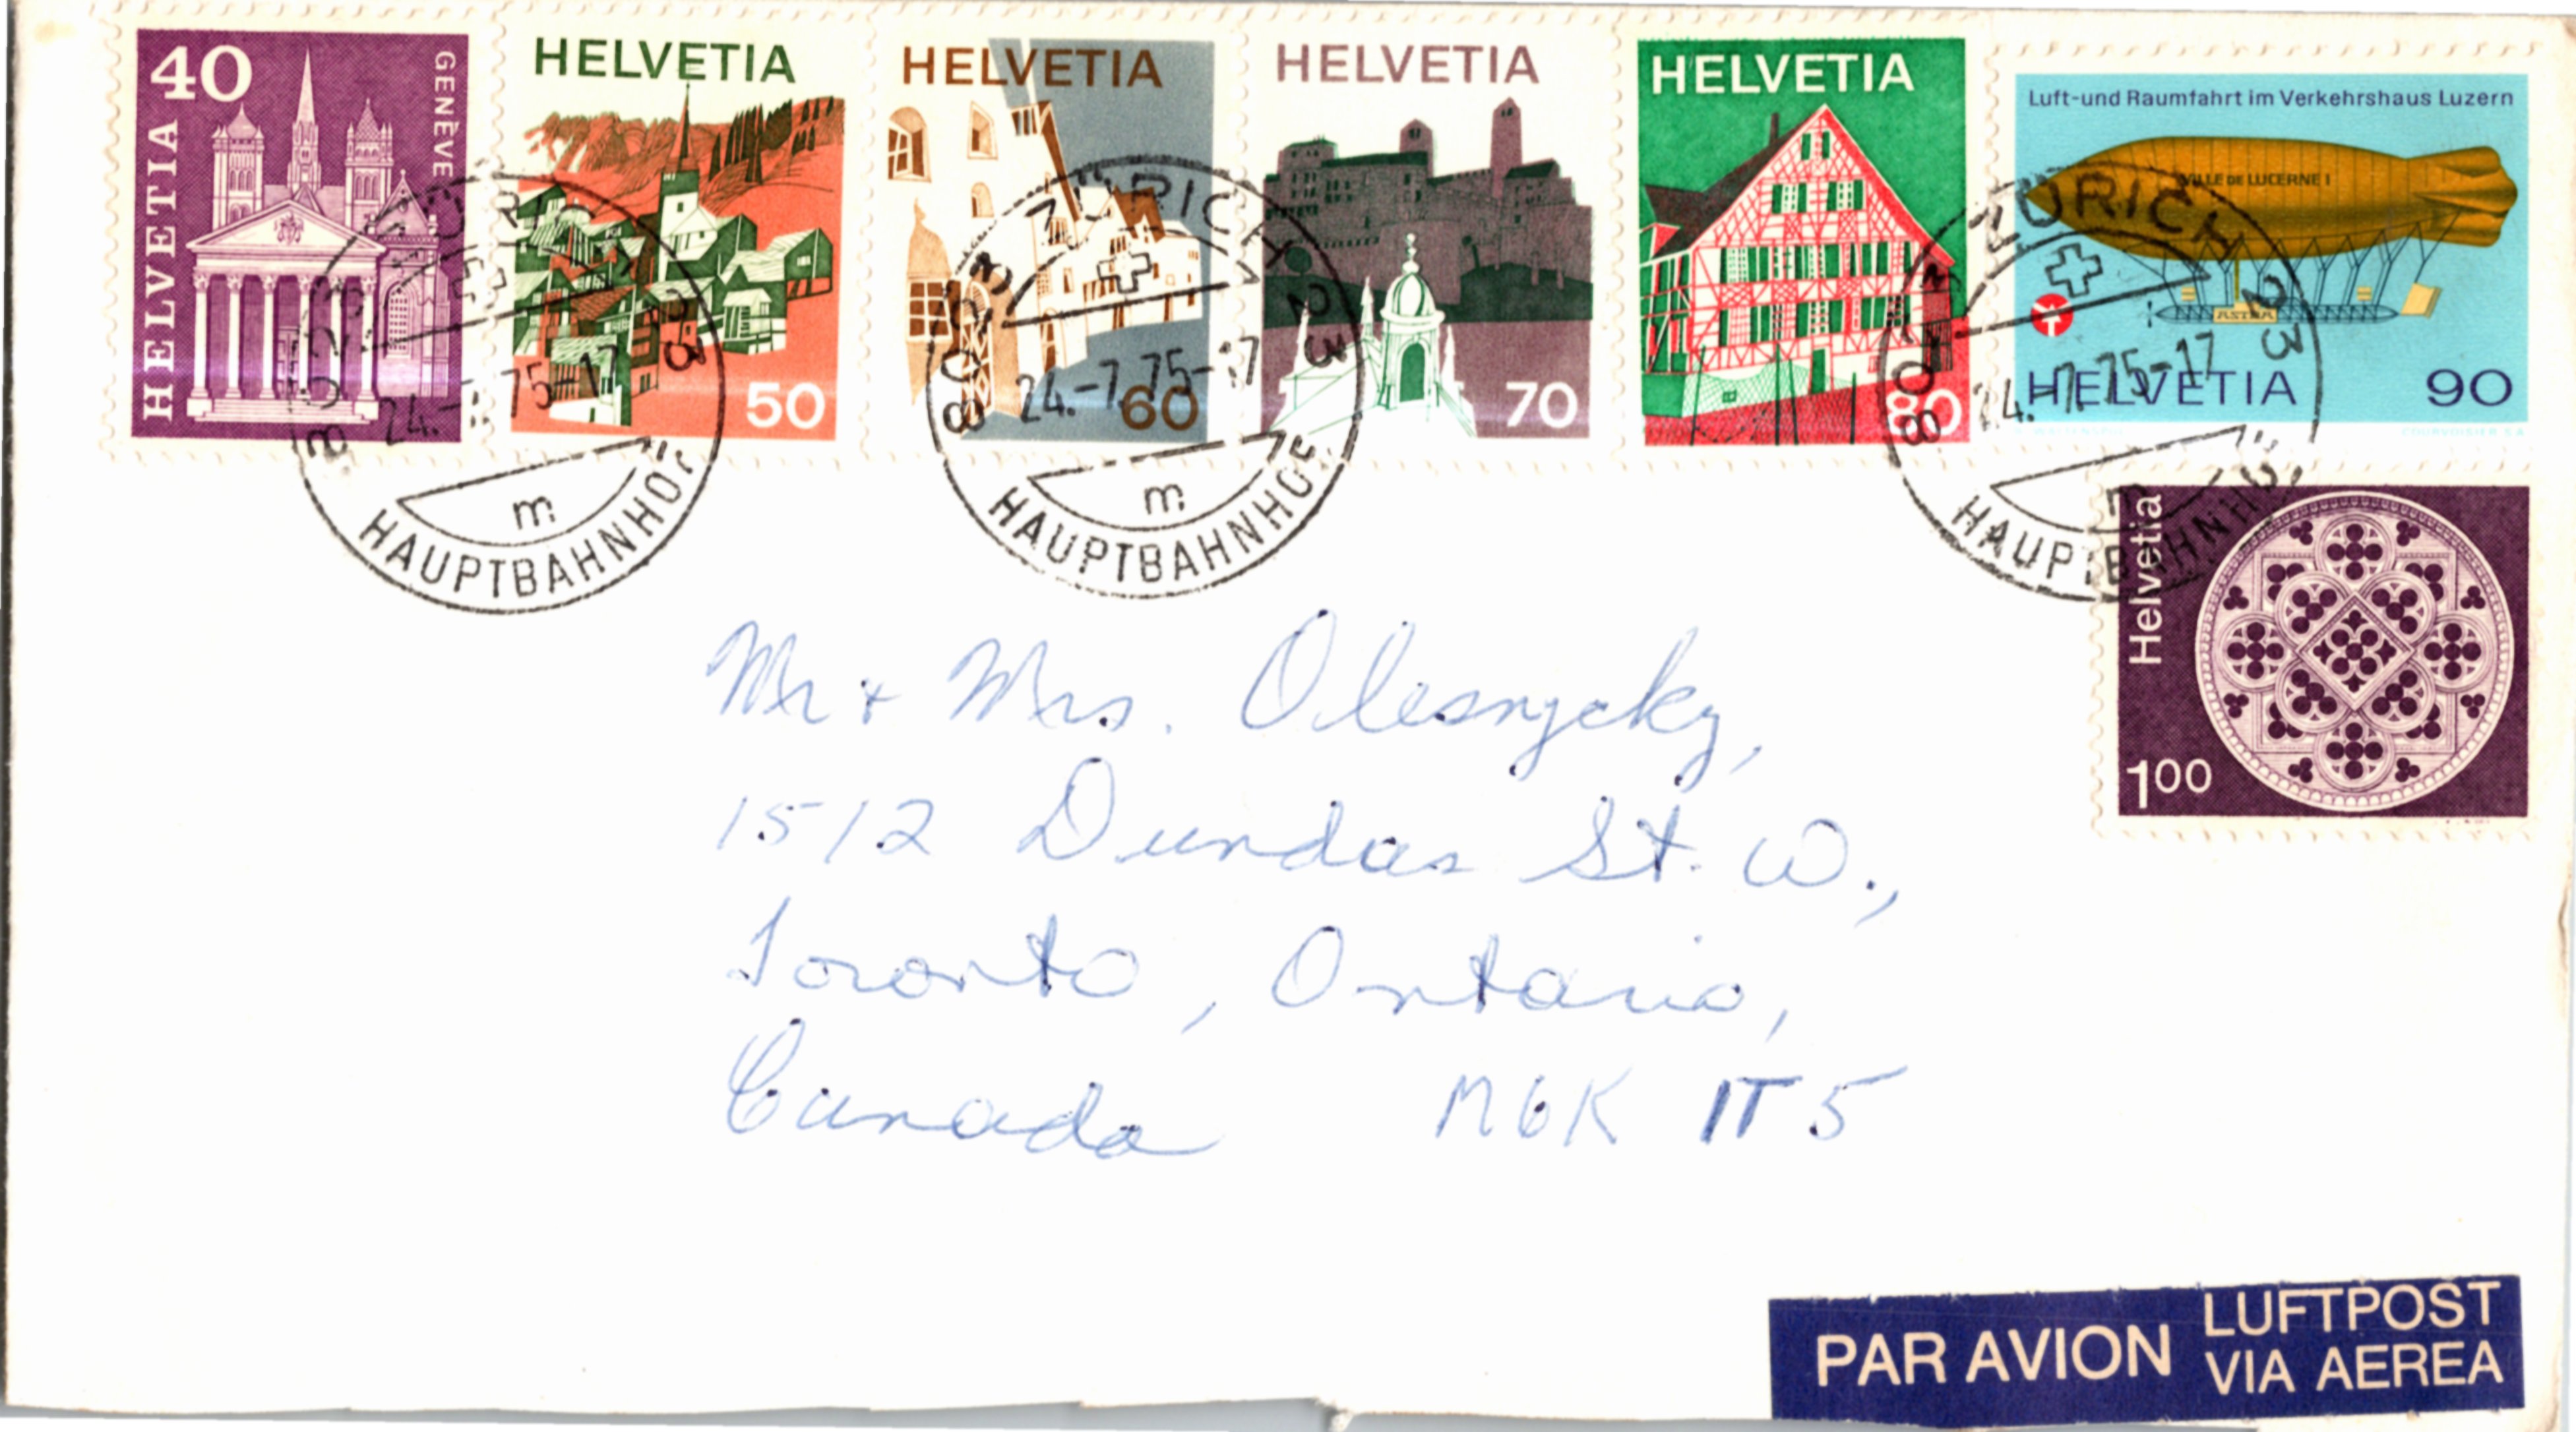 40
HELVETIA
GENÈVE
HELVETIA
50
HELVETIA
60
HELVETIA
70
HELVETIA
80
Luft-und Raumfahrt im Verkehrshaus Luzern
VILLE DE LUCERNE I
ASTRA
HELVETIA
90
COURVOISIER S.A.
Helvetia
100
8023 ZÜRICH 23
24.-7.75-17
m
HAUPTBAHNHOF
8023 ZÜRICH 23
24.-7.75-17
m
HAUPTBAHNHOF
8023 ZÜRICH 23
24.-7.75-17
m
HAUPTBAHNHOF
Mr + Mrs. Olesnycky,
1512 Dundas St. W.,
Toronto, Ontario,
Canada M6K 1T5
PAR AVION
LUFTPOST
VIA AEREA